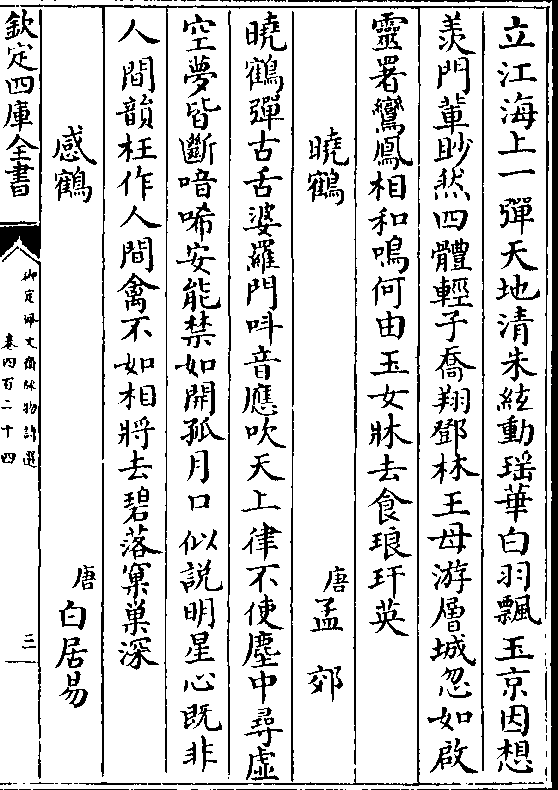 立江海上一彈天地清朱絃動瑤華白羽飄玉京因想
羨門輩眇然四體輕子喬翔鄧林王母游層城忽如啟
靈署鸞鳳相和鳴何由玉女牀去食琅玕英
曉鶴 唐 孟郊
曉鶴彈古舌婆羅門呌音應吹天上律不使塵中尋虛
空夢皆斷喑唏安能禁如開孤月口似説明星心既非
人間韻枉作人間禽不如相將去碧落窠巢深
感鶴 唐 白居易
欽定四庫全書
御定佩文齋詠物詩選
卷四百二十四
三